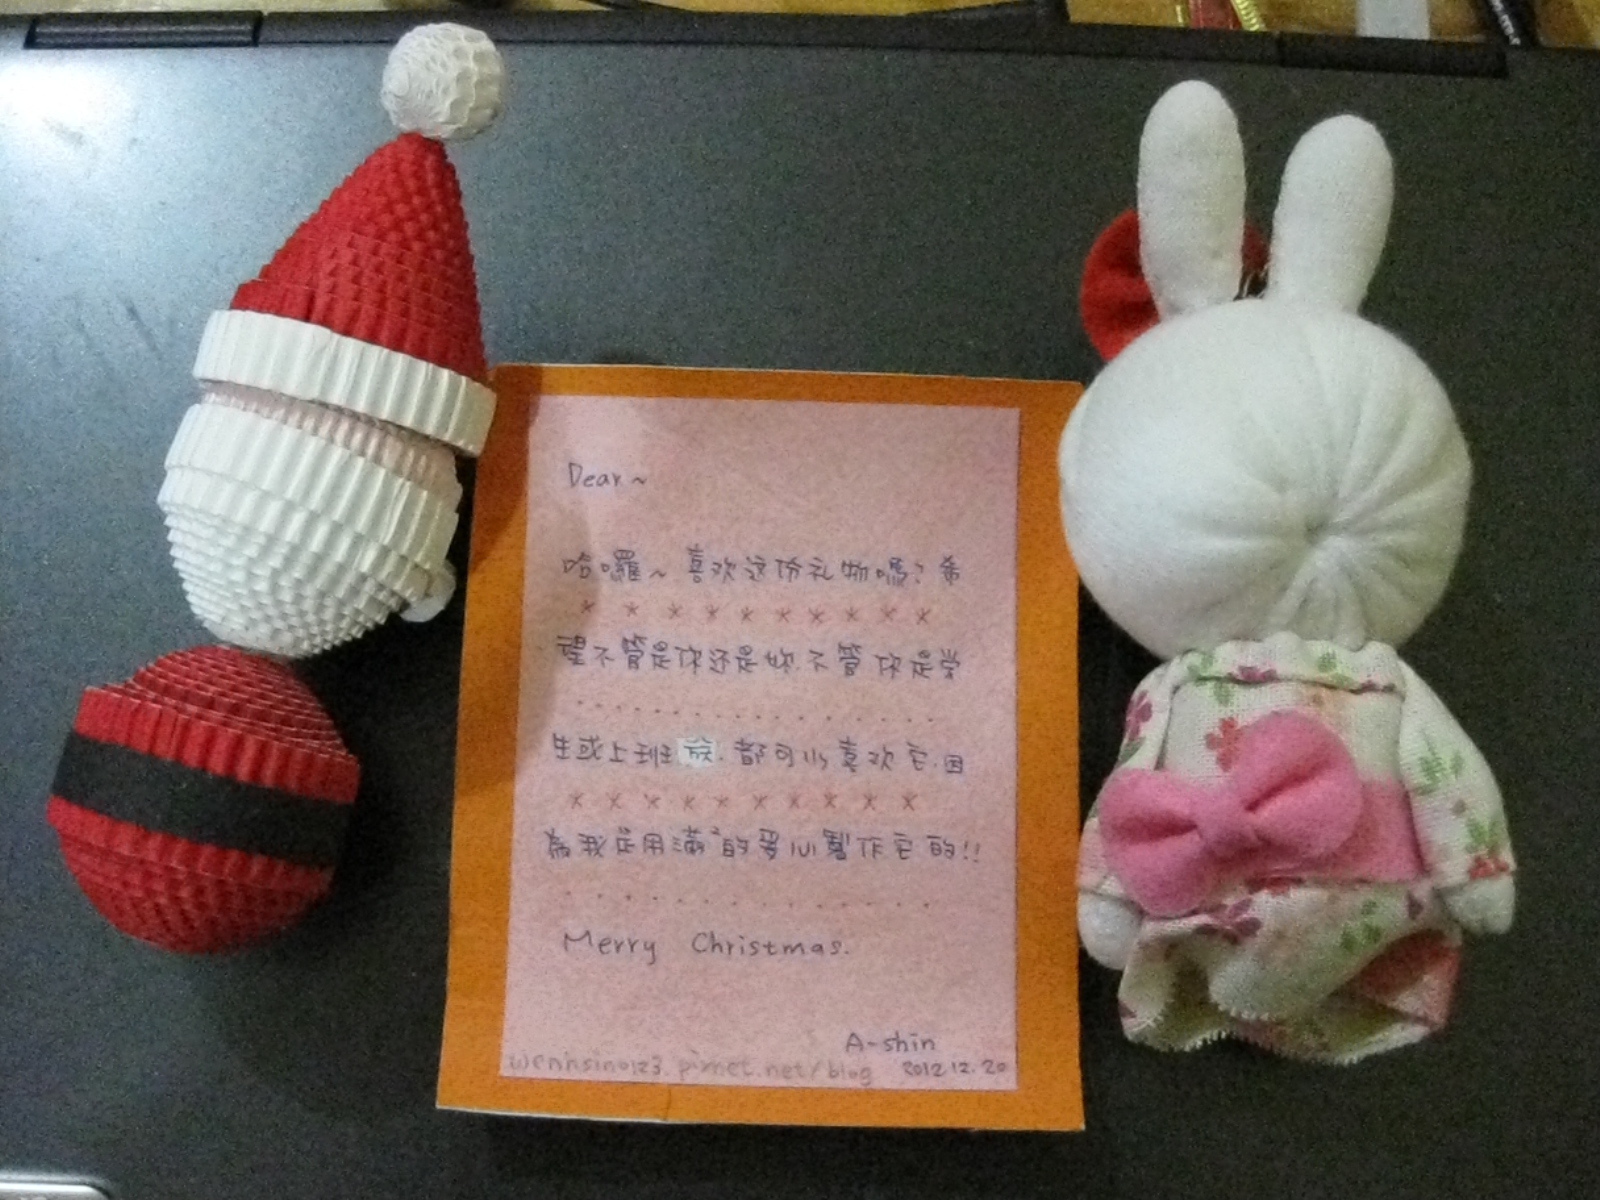 Dear~
哈囉~喜欢这份礼物嗎?希
望不管是你还是妳.不管你是学
生或上班族.都可以喜欢它.因
為我是用滿²的爱心製作它的!!
Merry Christmas.
A-shin
wenhsin0123.pixnet.net/blog 2012.12.20